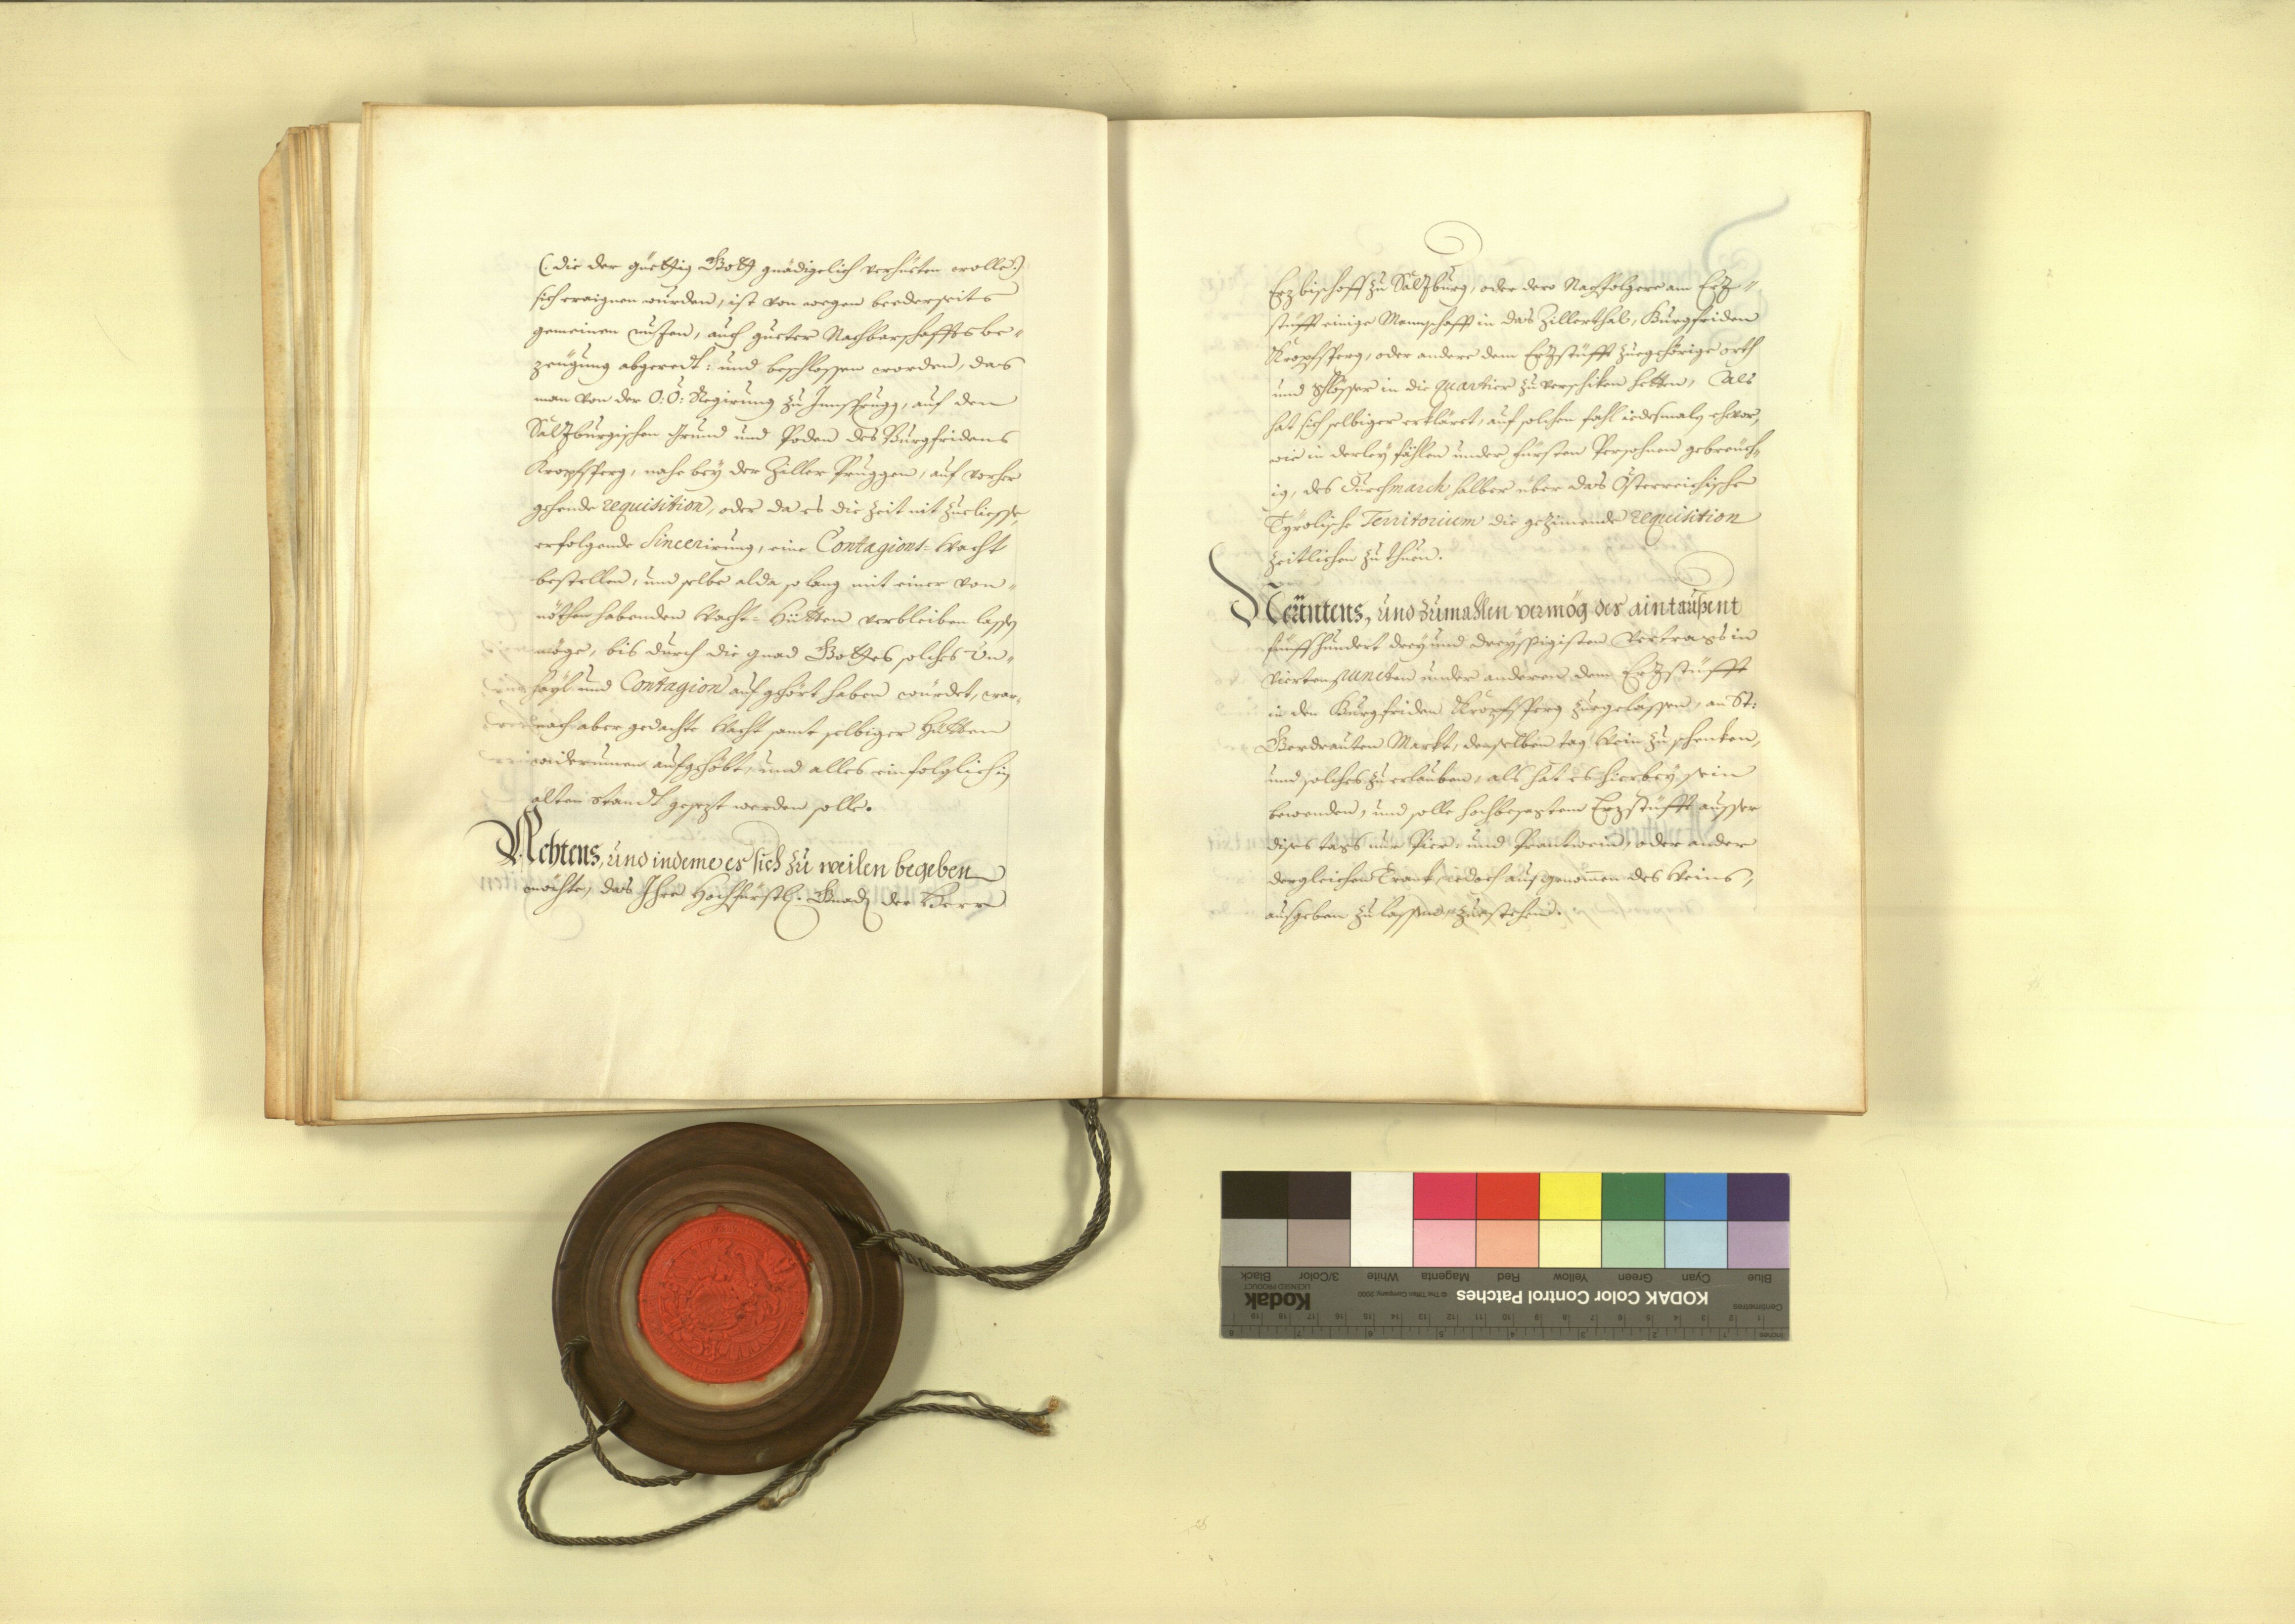 (: die der güettig Gott gnädigelich verhüeten wolle :)
sich eraignen wurden, ist von wegen beederseits
gemeinen nuzen, auch gueter Nachbarschafftsbe-
zeügung abgeredt: und beschlossen worden, das
man von der O: Ö: Regirung zu Innsprugg, auf den
Salzburgischen Grund und Poden des Burgfridens
Kropfsperg, nahe bey der Ziller Pruggen, auf vorher
gehende requisition, oder da es die zeit nit zueliesse,
erfolgende Sincerirung, eine Contagions-Wacht
bestellen, und selbe alda so lang mit einer von-
nöthen habenden Wacht-Hütten verbleiben lassen
möge, bis durch die gnad Gottes solches Vn-
hayl und Contagion aufgehört haben würdet, war-
nach aber gedachte Wacht samt selbiger Hütten
widerumen aufgehöbt, und alles einfolglich in
alten Standt gesezt werden solle.
Achtens, und indeme es sich zu weilen begeben
möchte, das Ihro Hochfürstl: Gnad: der Herr
Erzbischoff zu Salzburg, oder dero Nachfolgere am Erz-
stüfft einige Mannschafft in das Zillerthal, Burgfriden
Kropfsperg, oder andere dem Erzstüfft zuegehörige orth
und Schlösser in die quartier zu verschiken hetten, Als
hat sich selbiger erkläret, auf solchen fahl iedesmals ehevor,
wie in derley fählen under fürsten Persohnen gebreüch-
ig, des Durchmarch halber über das Österreichische
Tyrolische Territorium die gezimende requisition
zeitlichen zu thuen.
Neüntens, und zumahlen vermög des aintaußent
fünffhundert drey und dreyssigisten Vertrags in
Viertenpuncten under anderen dem Erzstüfft
in den Burgfriden Kropfsperg zuegelassen, an St:
Gerdrauten Markt, denselben tag Wein zu schenken,
und solches zu erlauben, als hat es hierbey sein
bewenden, und solle hochbesagtem Erzstüfft ausser
dises tags nur Pier- und Prantwein, oder ander
dergleichen Trank, iedoch ausgenommen des Weins,
ausgeben zu lassen, zuestehend.
Blue Cyan Green Yellow Red Magenta White 3/Color Black
KODAK Color Control Patches © The Tiffen Company, 2000 Kodak
LICENSED PRODUCT
Centimetres 1 2 3 4 5 6 7 8 9 10 11 12 13 14 15 16 17 18 19
Inches 1 2 3 4 5 6 7 8